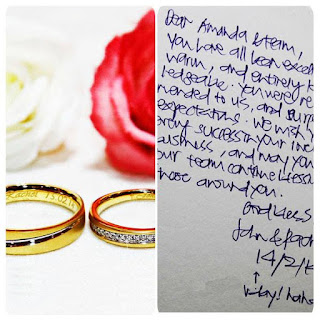 Dear Amanda & team,
You have all been
warm, and entirely
ledgeable. You were re
mended to us, and surp
expectations. We wish y
every success in your
business, and may you
our team continue
those around you.
God bless
John &
14/2/1
↑
haha
13.02.1